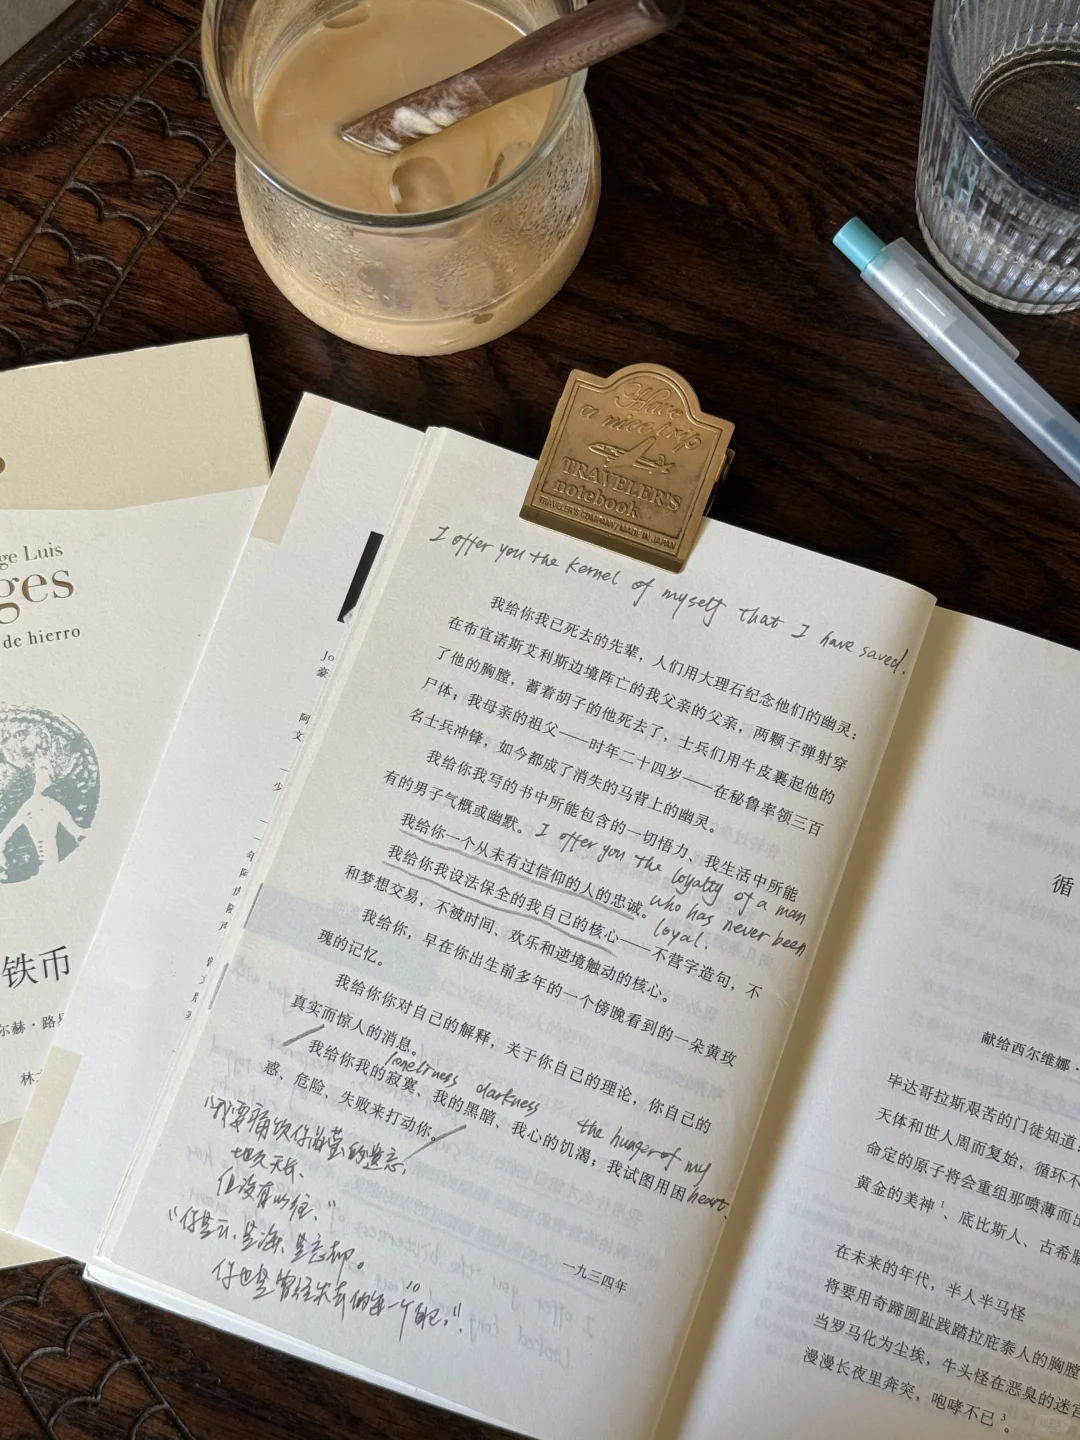 Have
a nice trip
TRAVELER'S
notebook
TRAVELER'S COMPANY MADE IN JAPAN
ge Luis
ges
de hierro
铁币
尔赫·路易
林
Jo
豪
阿
文
一
少
I offer you the kernel of myself that I have saved.
我给你我已死去的先辈，人们用大理石纪念他们的幽灵：
在布宜诺斯艾利斯边境阵亡的我父亲的父亲，两颗子弹射穿
了他的胸膛，蓄着胡子的他死去了，士兵们用牛皮裹起他的
尸体；我母亲的祖父——时年二十四岁——在秘鲁率领三百
名士兵冲锋，如今都成了消失的马背上的幽灵。
我给你我写的书中所能包含的一切悟力、我生活中所能
有的男子气概或幽默。
I offer you the loyalty of a man
who has never been
loyal.
我给你一个从未有过信仰的人的忠诚。
我给你我设法保全的我自己的核心——不营字造句，不
和梦想交易，不被时间、欢乐和逆境触动的核心。
我给你，早在你出生前多年的一个傍晚看到的一朵黄玫
瑰的记忆。
我给你你对自己的解释，关于你自己的理论，你自己的
真实而惊人的消息。
loneliness darkness the hunger of my
heart.
我给你我的寂寞、我的黑暗、我心的饥渴；我试图用困
惑、危险、失败来打动你。
地久天长、
但没有以往、”
“你是云、是海、是忘却。
你也是曾经失去的每一个自己。”
一九三四年
循
献给西尔维娜·
毕达哥拉斯艰苦的门徒知道
天体和世人周而复始，循环不
命定的原子将会重组那喷薄而出
黄金的美神1、底比斯人、古希腊
在未来的年代，半人半马怪
将要用奇蹄圆趾践踏拉庇泰人的胸膛
当罗马化为尘埃，牛头怪在恶臭的迷宫
漫漫长夜里奔突，咆哮不已3。